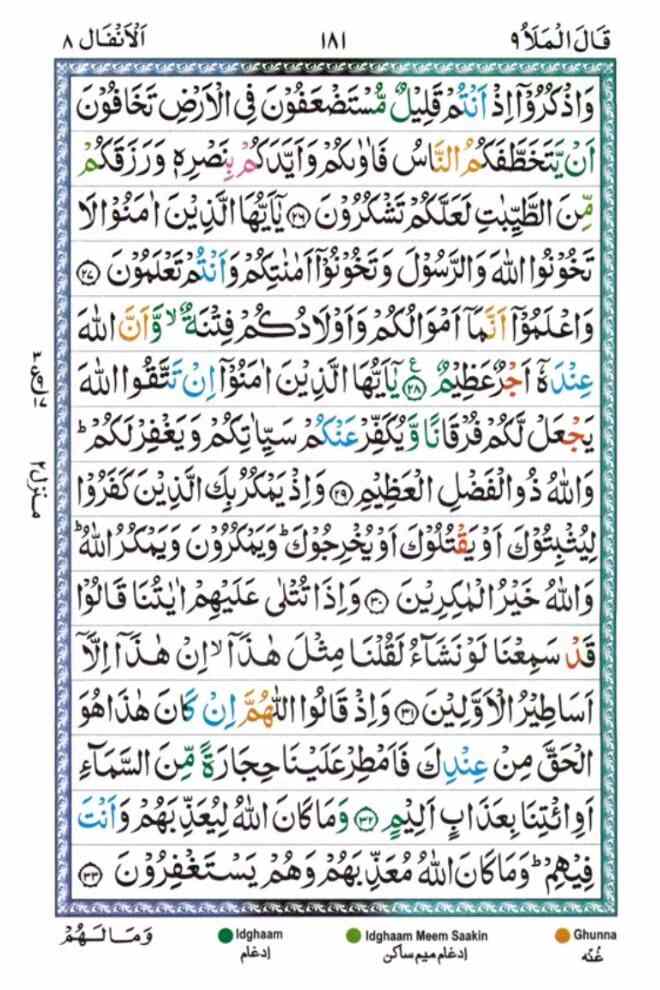 قَالَ الْمَلَاُ ۹ ۱۸۱ اَلْاَنْفَال ۸
وَاذْكُرُوْٓا اِذْ اَنْتُمْ قَلِيْلٌ مُّسْتَضْعَفُوْنَ فِى الْاَرْضِ تَخَافُوْنَ
اَنْ يَّتَخَطَّفَكُمُ النَّاسُ فَاٰوٰىكُمْ وَاَيَّدَكُمْ بِنَصْرِهٖ وَرَزَقَكُمْ
مِّنَ الطَّيِّبٰتِ لَعَلَّكُمْ تَشْكُرُوْنَ ﴿۲۶﴾ يٰٓاَيُّهَا الَّذِيْنَ اٰمَنُوْا لَا
تَخُوْنُوا اللّٰهَ وَالرَّسُوْلَ وَتَخُوْنُوْٓا اَمٰنٰتِكُمْ وَاَنْتُمْ تَعْلَمُوْنَ ﴿۲۷﴾
وَاعْلَمُوْٓا اَنَّمَآ اَمْوَالُكُمْ وَاَوْلَادُكُمْ فِتْنَةٌ ۙ وَّاَنَّ اللّٰهَ
عِنْدَهٗٓ اَجْرٌ عَظِيْمٌ ﴿۲۸﴾ ع يٰٓاَيُّهَا الَّذِيْنَ اٰمَنُوْٓا اِنْ تَتَّقُوا اللّٰهَ
يَجْعَلْ لَّكُمْ فُرْقَانًا وَّيُكَفِّرْ عَنْكُمْ سَيِّاٰتِكُمْ وَيَغْفِرْ لَكُمْ ؕ
وَاللّٰهُ ذُو الْفَضْلِ الْعَظِيْمِ ﴿۲۹﴾ وَاِذْ يَمْكُرُ بِكَ الَّذِيْنَ كَفَرُوْا
لِيُثْبِتُوْكَ اَوْ يَقْتُلُوْكَ اَوْ يُخْرِجُوْكَ ؕ وَيَمْكُرُوْنَ وَيَمْكُرُ اللّٰهُ ؕ
وَاللّٰهُ خَيْرُ الْمٰكِرِيْنَ ﴿۳۰﴾ وَاِذَا تُتْلٰى عَلَيْهِمْ اٰيٰتُنَا قَالُوْا
قَدْ سَمِعْنَا لَوْ نَشَآءُ لَقُلْنَا مِثْلَ هٰذَآ ۙ اِنْ هٰذَآ اِلَّآ
اَسَاطِيْرُ الْاَوَّلِيْنَ ﴿۳۱﴾ وَاِذْ قَالُوا اللّٰهُمَّ اِنْ كَانَ هٰذَا هُوَ
الْحَقَّ مِنْ عِنْدِكَ فَاَمْطِرْ عَلَيْنَا حِجَارَةً مِّنَ السَّمَآءِ
اَوِ ائْتِنَا بِعَذَابٍ اَلِيْمٍ ﴿۳۲﴾ وَمَا كَانَ اللّٰهُ لِيُعَذِّبَهُمْ وَاَنْتَ
فِيْهِمْ ؕ وَمَا كَانَ اللّٰهُ مُعَذِّبَهُمْ وَهُمْ يَسْتَغْفِرُوْنَ ﴿۳۳﴾
منزل ۲
وَمَا لَهُمْ
Idghaam
ادغام
Idghaam Meem Saakin
ادغام ميم ساكن
Ghunna
غُنّه